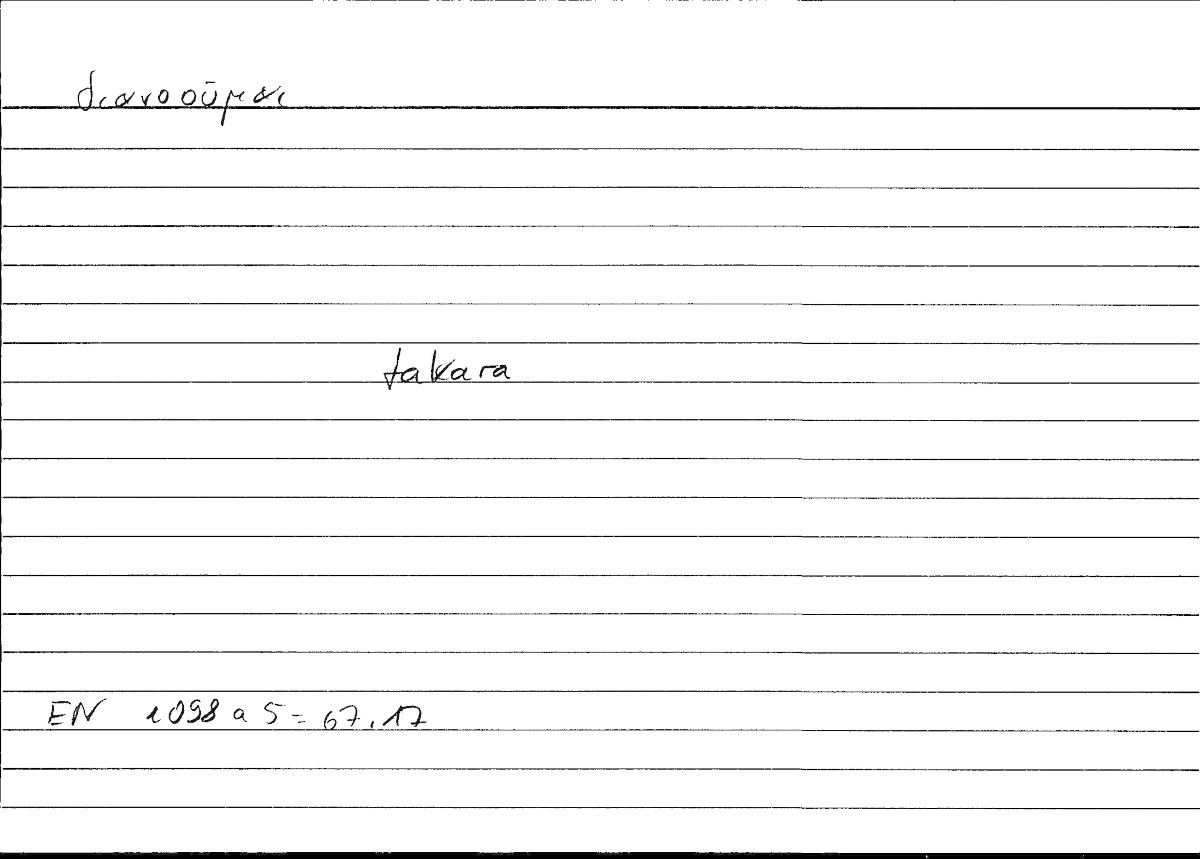 διανοοῦμαι
fakara
EN 1098 a 5 = 67.17